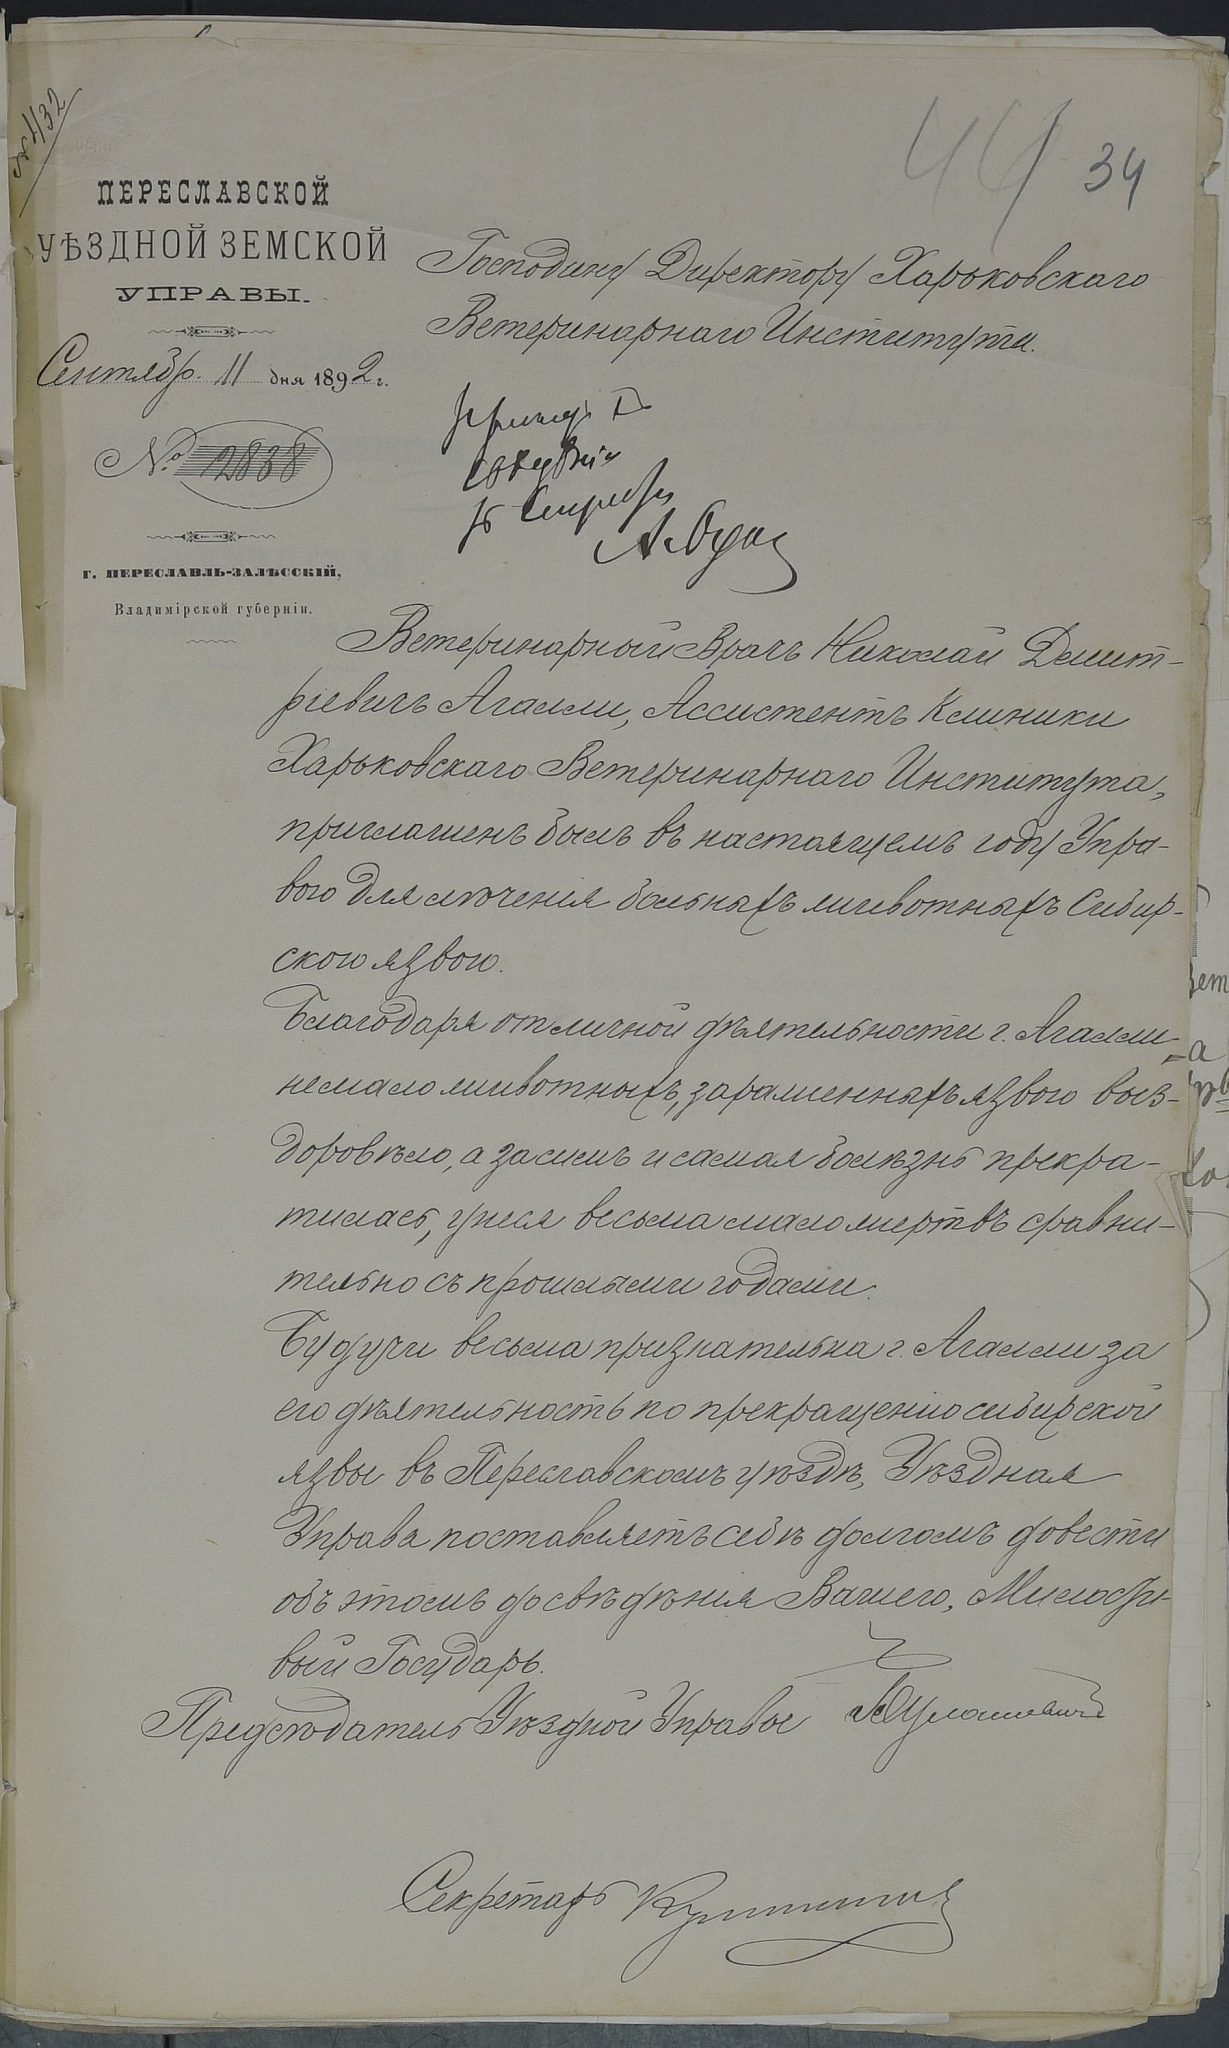 № 1132
44 34
ПЕРЕСЛАВСКОЙ
УѢЗДНОЙ ЗЕМСКОЙ
УПРАВЫ.
Сентябр. 11 дня 1892 г.
№ 2838
г. ПЕРЕСЛАВЛЬ-ЗАЛѢССКІЙ,
Владимірской губерніи.
Господину Директору Харьковскаго
Ветеринарнаго Института.
Ветеринарный Врачъ Николай Дмит-
ріевичъ Агалли, Ассистентъ Клиники
Харьковскаго Ветеринарнаго Института,
приглашенъ былъ въ настоящемъ году Упра-
вою для лѣченія больныхъ животныхъ Сибир-
скою язвою.
Благодаря отличной дѣятельности г. Агалли
немало животныхъ, зараженныхъ язвою выз-
доровѣло, а засимъ и самая болѣзнь прекра-
тилась, унеся весьма мало жертвъ сравни-
тельно съ прошлыми годами.
Будучи весьма признательна г. Агалли за
его дѣятельность по прекращенію сибирской
язвы въ Переславскомъ уѣздѣ, Уѣздная
Управа поставляетъ себѣ долгомъ довести
объ этомъ до свѣдѣнія Вашего, Милости-
вый Государь.
Предсѣдатель Уѣздной Управы
Секретарь